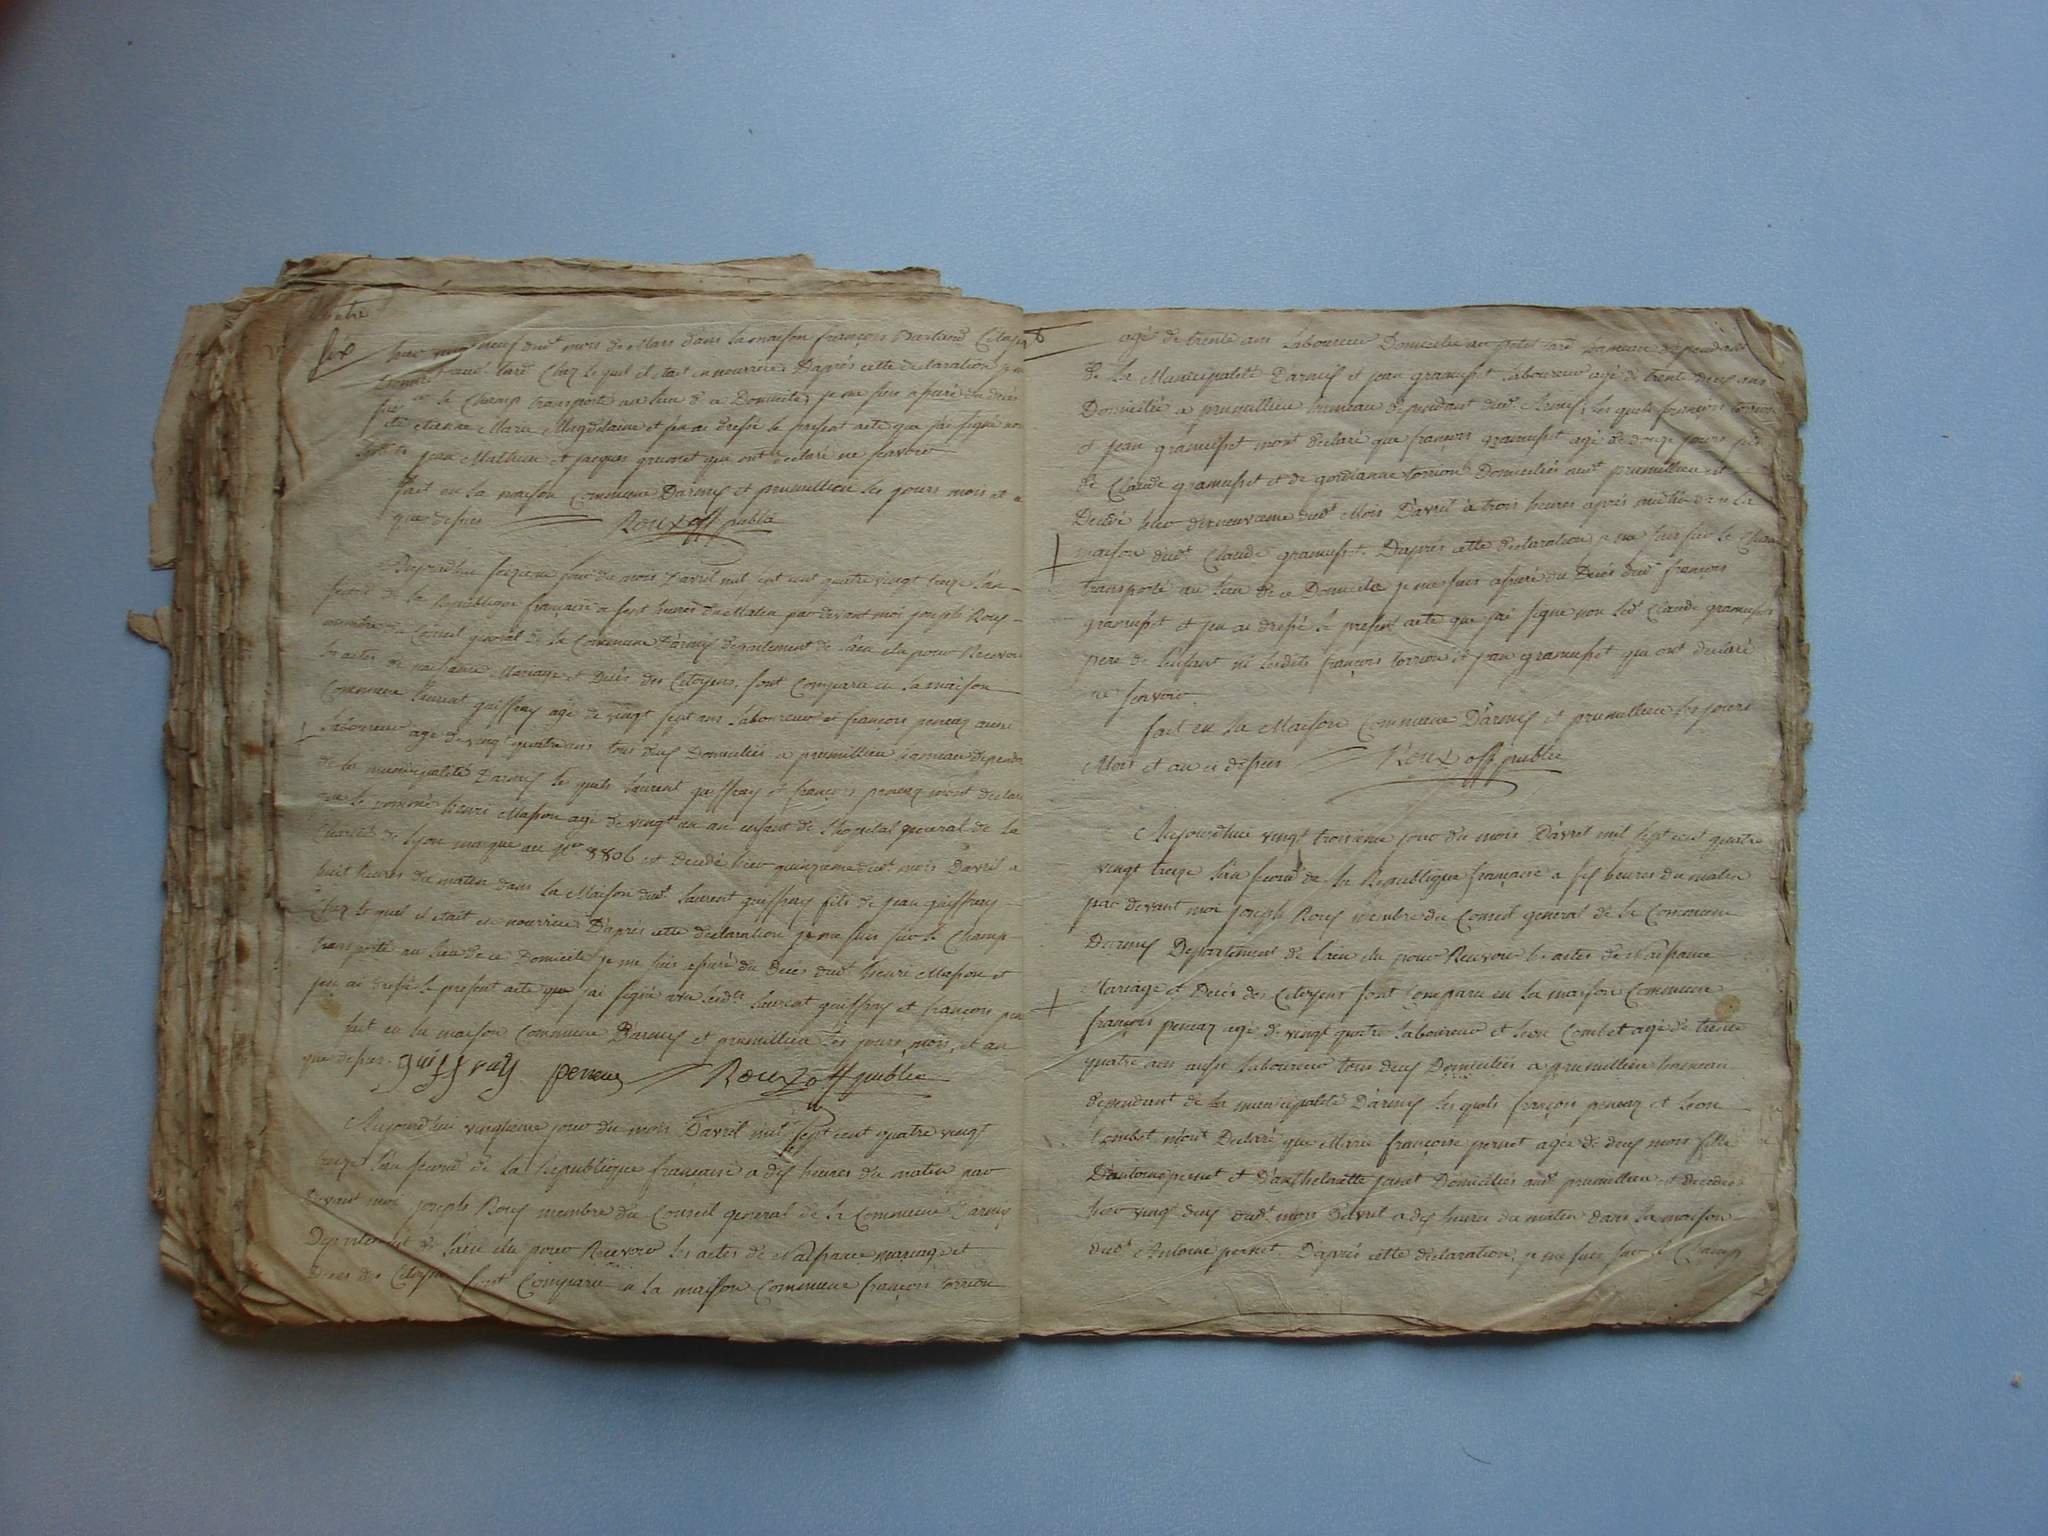 hier vingt neuf dudt mois de Mars dans la maison françois Barland
tard Chez lequel il etait en nourrice D'après cette declaration
le Champ transporté au lieu de ce Domicile je me suis assuré du decès
etienne Marie Magdelaine et j'en ai dressé le present acte que j'ai signé non
jean Mathieu et jacques qui ont declaré ne scavoir
fait en la maison Commune D'armix et prumillieu les jours mois et a
que dessus Roux off public
Aujourdhui seizieme jour du mois D'avril mil sept cent quatre vingt treize l'an
second de la Republique française a sept heures du Matin par devant moi joseph Roux
membre du Conseil general de la Commune D'armix departement de L'ain elu pour Recevoir
les actes de naissance Mariage et Decès des Citoyens, sont Comparu en la maison
Commune laurent guiffray agé de vingt sept ans laboureur et françois peneaz aussi
laboureur agé de vingt quatre ans tous deux Domiciliés a prumillieu hameau dependt
de la municipalité D'armix les quels laurent guiffray et françois peneaz m'ont declaré
que le nommé henri Masson agé de vingt un an enfant de l'hopital general de la
Charité de lyon marqué au No 8806 est decedé hier quinzieme dudt mois D'avril a
huit heures du matin dans la Maison dudt laurent guiffray fils de jean guiffray
Chez lequel il etait en nourrice D'après cette declaration je me suis sur le Champ
transporté au lieu de ce Domicile je me suis assuré du decès dudt henri Masson et
j'en ai dressé le present acte que j'ai signé avec lesdts laurent guiffray et françois pen
fait en la maison Commune D'armix et prumillieu les jours, mois, et an
que dessus. guiffray peneaz Roux off public
Aujourdhui vingtieme jour du mois D'avril mil sept cent quatre vingt
treize l'an second de la Republique française a dix heures du matin par
devant moi joseph Roux membre du Conseil general de la Commune D'armix
Departement de l'ain elu pour Recevoir les actes de Naissance mariage et
Decès des Citoyens sont Comparu en la maison Commune françois torrion
agé de trente ans laboureur Domicilié au petit tard hameau dependant
de la Municipalité D'armix et jean gramusset laboureur agé de trente deux ans
Domicilié a prumillieu hameau dependant dudt Armix, les quels françois torrion
et jean gramusset m'ont declaré que françois gramusset agé de douze jours fils
de Claude gramusset et de gordianne torrion Domiciliés audt prumillieu est
Decedé hier dixneuvieme dudt Mois D'avril à trois heures après midi dans la
maison dudt Claude gramusset. D'après cette declaration je me suis sur le Champ
transporté au lieu de ce Domicile je me suis assuré du Decès dudt françois
gramusset et j'en ai dressé le present acte que j'ai signé non ledt Claude gramusset
pere de l'enfant ni lesdits françois torrion et jean gramusset qui ont declaré
ne scavoir.
fait en la Maison Commune D'armix et prumillieu les jours
Mois et an ci dessus Roux off public
Aujourdhui vingt troisieme jour du mois D'avril mil sept cent quatre
vingt treize l'an second de la Republique française a six heures du matin
par devant moi joseph Roux membre du Conseil general de la Commune
D'armix Departement de l'ain elu pour Recevoir les actes de Naissance
Mariage et Decès des Citoyens sont Comparu en la maison Commune
françois peneaz agé de vingt quatre laboureur et leon Combet agé de trente
quatre ans aussi laboureur tous deux Domiciliés a prumillieu hameau
dependant de la municipalité D'armix les quels françois peneaz et leon
Combet m'ont Declaré que Marie françoise pernet agée de deux mois fille
D'antoine pernet et D'anthelmette Domiciliés audt prumillieu est decedée
hier vingt deux dudt mois D'avril a dix heures du matin dans la maison
dudt Antoine pernet. D'après cette declaration, je me suis sur le Champ